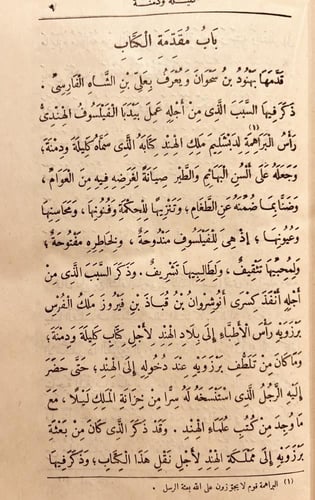 كليلة ودمنة ٩
بَابُ مُقَدِّمَةِ الْكِتَابِ
قَدَّمَهَا بَهْنُودُ بْنُ سَحْوَانَ وَيُعْرَفُ بِعَلِيِّ بْنِ الشَّاهِ الْفَارِسِيِّ .
ذَكَرَ فِيهَا السَّبَبَ الَّذِى مِنْ أَجْلِهِ عَمِلَ بَيْدَبَا الْفَيْلَسُوفُ الْهِنْدِىُّ
رَأْسُ الْبَرَاهِمَةِ (١) لِدَبْشَلِيمَ مَلِكِ الْهِنْدِ كِتَابَهُ الَّذِى سَمَّاهُ كَلِيلَةَ وَدِمْنَةَ ،
وَجَعَلَهُ عَلَى أَلْسُنِ الْبَهَائِمِ وَالطَّيْرِ صِيَانَةً لِغَرَضِهِ فِيهِ مِنَ الْعَوَامِّ ،
وَضَنًّا بِمَا ضَمَّنَهُ عَنِ الطَّغَامِ ؛ وَتَنْزِيهًا لِلْحِكْمَةِ وَفُنُونِهَا ، وَمَحَاسِنِهَا
وَعُيُونِهَا ؛ إِذْ هِىَ لِلْفَيْلَسُوفِ مَنْدُوحَةٌ ، وَلِخَاطِرِهِ مَفْتُوحَةٌ ؛
وَلِمُحِبِّيهَا تَثْقِيفٌ ، وَلِطَالِبِيهَا تَشْرِيفٌ . وَذَكَرَ السَّبَبَ الَّذِى مِنْ
أَجْلِهِ أَنْفَذَ كِسْرَى أَنُوشِرْوَانُ بْنُ قُبَاذَ بْنِ فَيْرُوزَ مَلِكُ الْفُرْسِ
بَرْزَوَيْهِ رَأْسَ الْأَطِبَّاءِ إِلَى بِلَادِ الْهِنْدِ لِأَجْلِ كِتَابِ كَلِيلَةَ وَدِمْنَةَ ؛
وَمَا كَانَ مِنْ تَلَطُّفِ بَرْزَوَيْهِ عِنْدَ دُخُولِهِ إِلَى الْهِنْدِ ؛ حَتَّى حَضَرَ
إِلَيْهِ الرَّجُلُ الَّذِى اسْتَنْسَخَهُ لَهُ سِرًّا مِنْ خِزَانَةِ الْمَلِكِ لَيْلًا ، مَعَ
مَا وُجِدَ مِنْ كُتُبِ عُلَمَاءِ الْهِنْدِ . وَقَدْ ذَكَرَ الَّذِى كَانَ مِنْ بَعْثَةِ
بَرْزَوَيْهِ إِلَى مَمْلَكَةِ الْهِنْدِ لِأَجْلِ نَقْلِ هَذَا الْكِتَابِ ؛ وَذَكَرَ فِيهَا
(١) البراهمة قوم لا يجوّزون على الله بعثة الرسل .